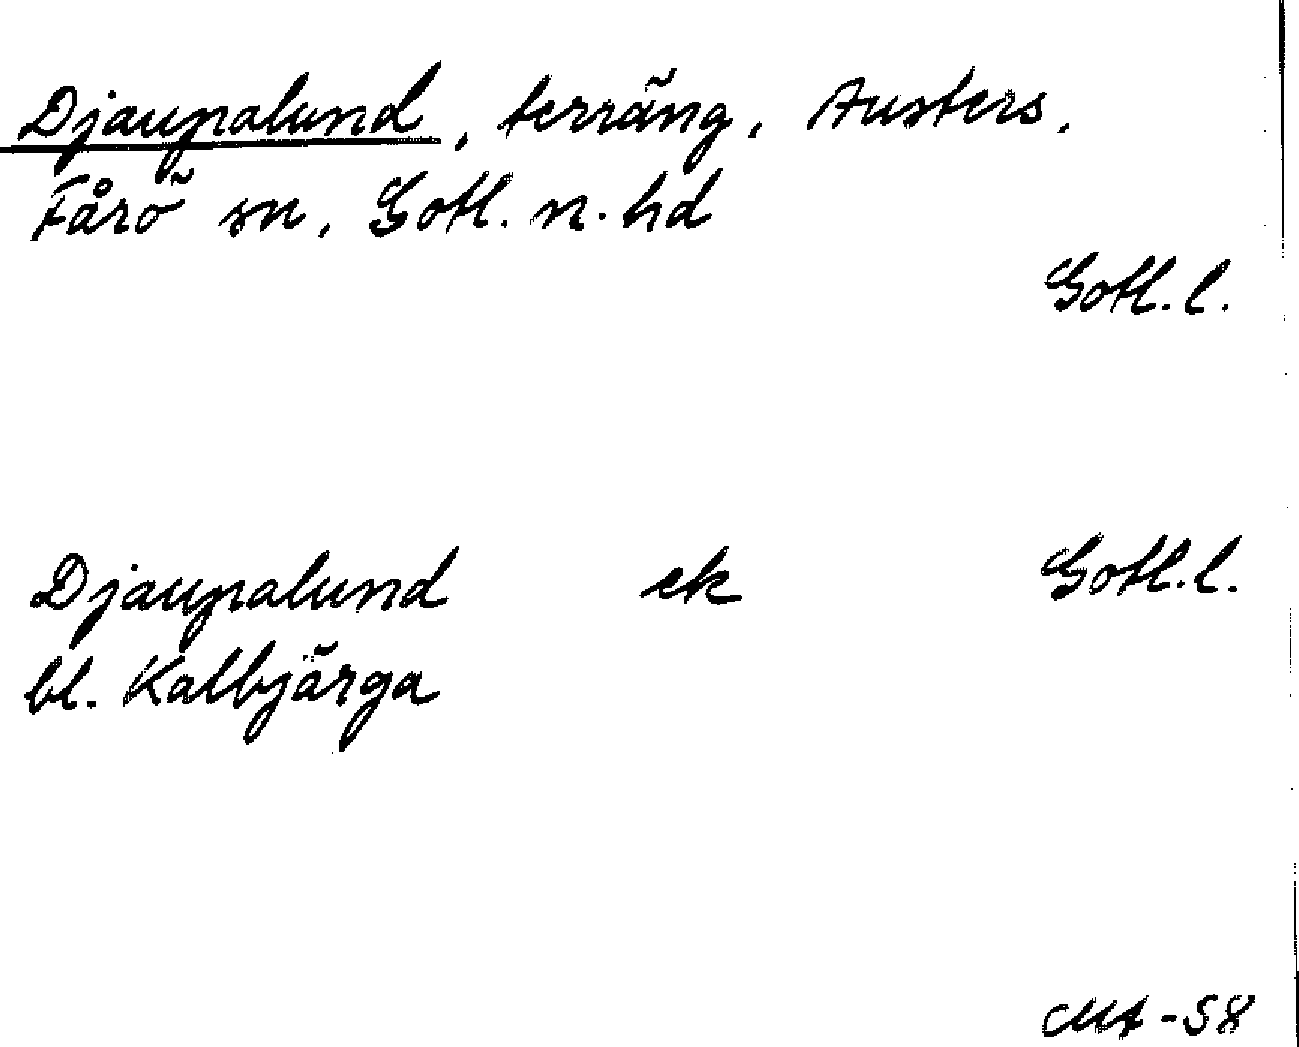 Djaupalund, terräng, Austers,
Fårö sn, Gotl. n. hd
Gotl. l.
Djaupalund ek Gotl. l.
bl. Kalbjärga
MA-58